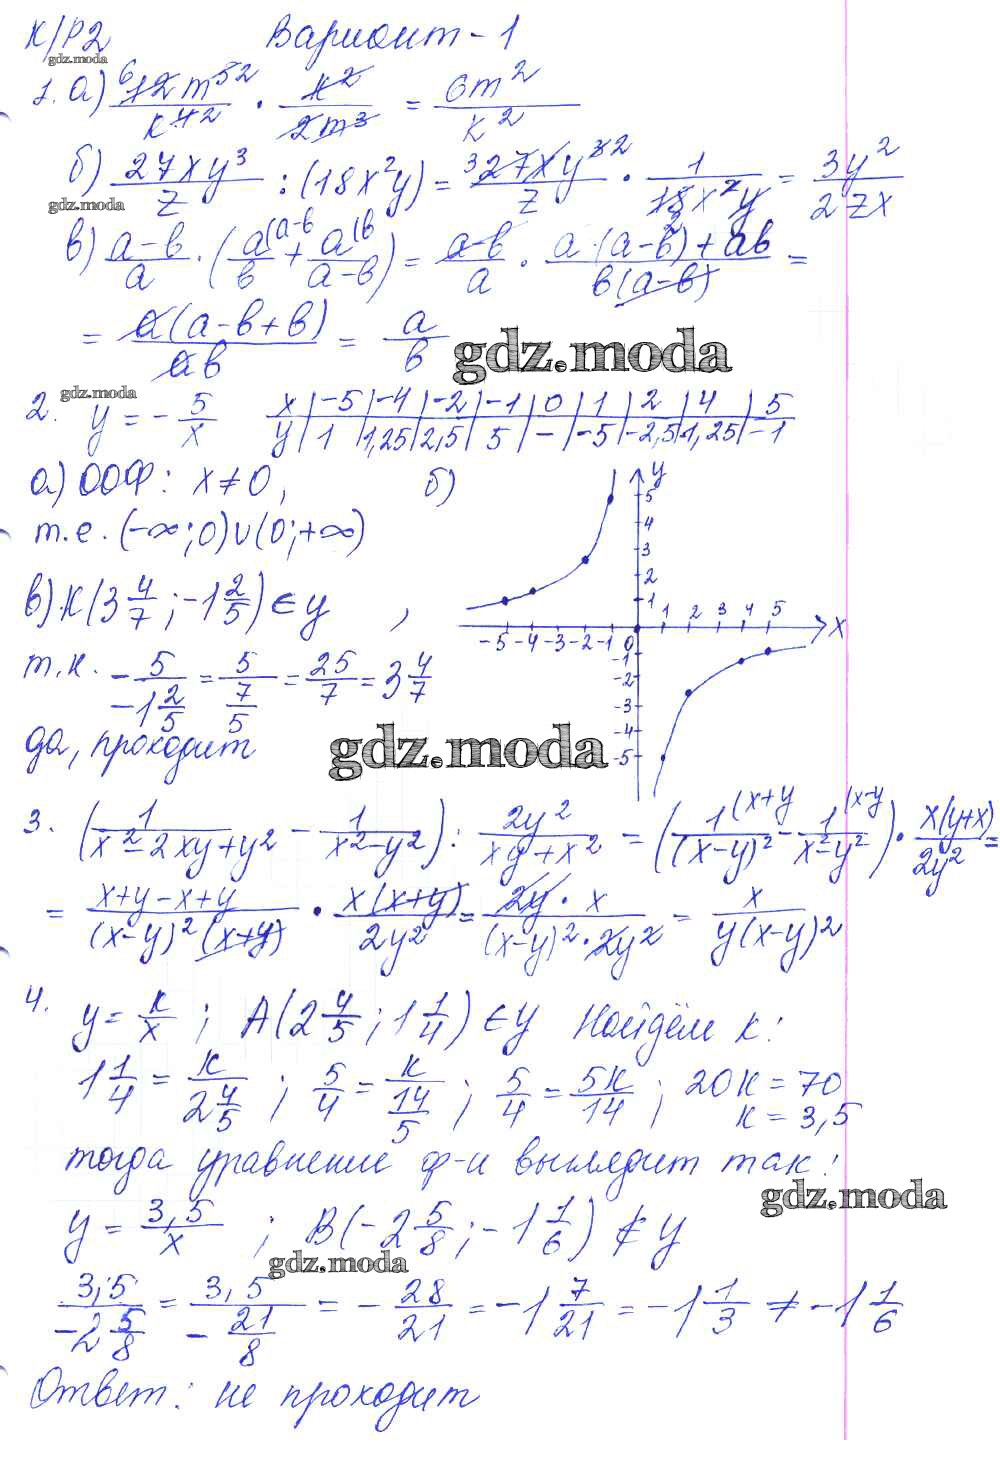 К/Р2 Вариант - 1
gdz.moda
1. а) 12m⁵/k⁴ · k²/2m³ = 6m²/k²
б) 27xy³/z : (18x²y) = 27xy³/z · 1/18x²y = 3y²/2zx
gdz.moda
в) a-b/a · (a(a-b/b + a(b/a-b) = a-b/a · a(a-b)+ab/b(a-b) =
= a(a-b+b)/ab = a/b
gdz.moda
gdz.moda
2. y = - 5/x
x | -5 | -4 | -2 | -1 | 0 | 1 | 2 | 4 | 5
y | 1 | 1,25 | 2,5 | 5 | - | -5 | -2,5 | -1,25 | -1
а) ООФ: x ≠ 0, б)
т.е. (-∞; 0)∪(0; +∞)
в) К(3 4/7 ; -1 2/5) ∈ y ,
т.к. - 5/-1 2/5 = 5/7/5 = 25/7 = 3 4/7
да, проходит
y
5
4
3
2
1
-5 -4 -3 -2 -1 0 1 2 3 4 5 x
-1
-2
-3
-4
-5
gdz.moda
3. (1/x²-2xy+y² - 1/x²-y²) : 2y²/xy+x² = (1(x+y/(x-y)² - 1(x-y/x²-y²) · x(y+x)/2y² =
= x+y-x+y/(x-y)²(x+y) · x(x+y)/2y² = 2y·x/(x-y)²·2y² = x/y(x-y)²
4. y = k/x ; A(2 4/5 ; 1 1/4) ∈ y Найдём k:
1 1/4 = k/2 4/5 ; 5/4 = k/14/5 ; 5/4 = 5k/14 ; 20k = 70
k = 3,5
тогда уравнение ф-и выглядит так:
gdz.moda
y = 3,5/x ; B(-2 5/8 ; -1 1/6) ∉ y
gdz.moda
3,5/-2 5/8 = 3,5/- 21/8 = - 28/21 = -1 7/21 = -1 1/3 ≠ -1 1/6
Ответ: не проходит